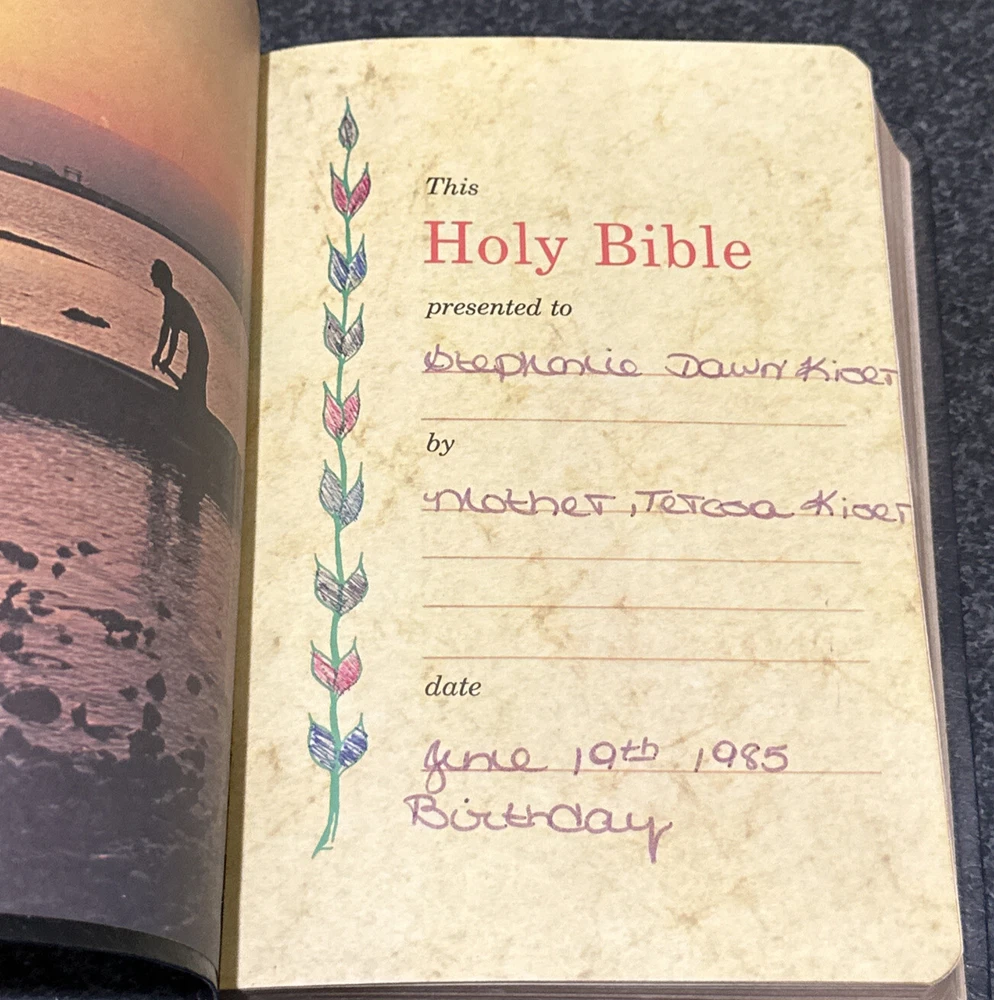 This
Holy Bible
presented to
Stephanie Dawn Kiser
by
Mother, Teresa Kiser
date
June 19th, 1985
Birthday